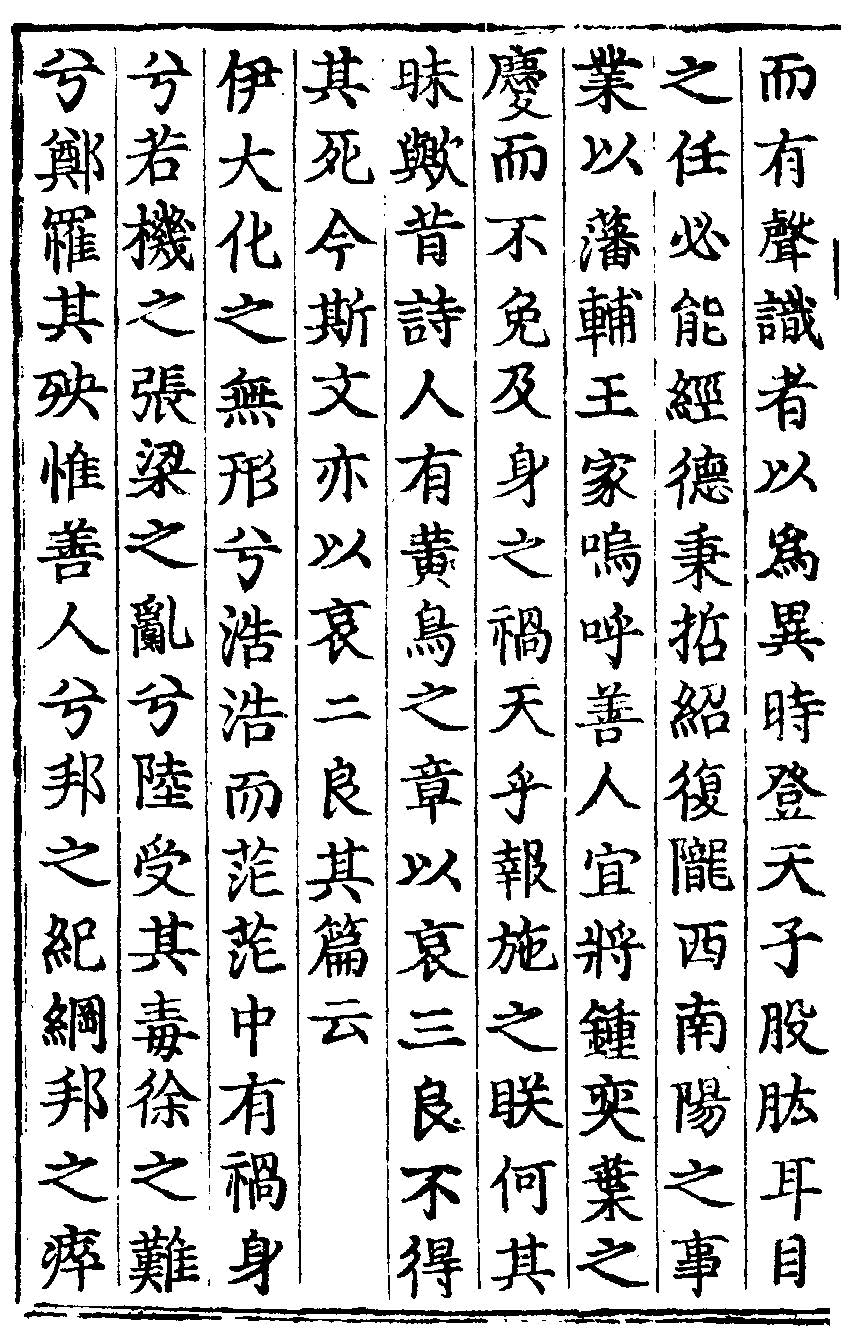 而有聲識者以爲異時登天子股肱耳目
之任必能經德秉哲紹復隴西南陽之事
業以藩輔王家嗚呼善人宜將鍾奕葉之
慶而不免及身之禍天乎報施之眹何其
昧歟昔詩人有黄鳥之章以哀三良不得
其死今斯文亦以哀二良其篇云
伊大化之無形兮浩浩而茫茫中有禍身
兮若機之張梁之亂兮陸受其毒徐之難
兮鄭罹其殃惟善人兮邦之紀綱邦之瘁